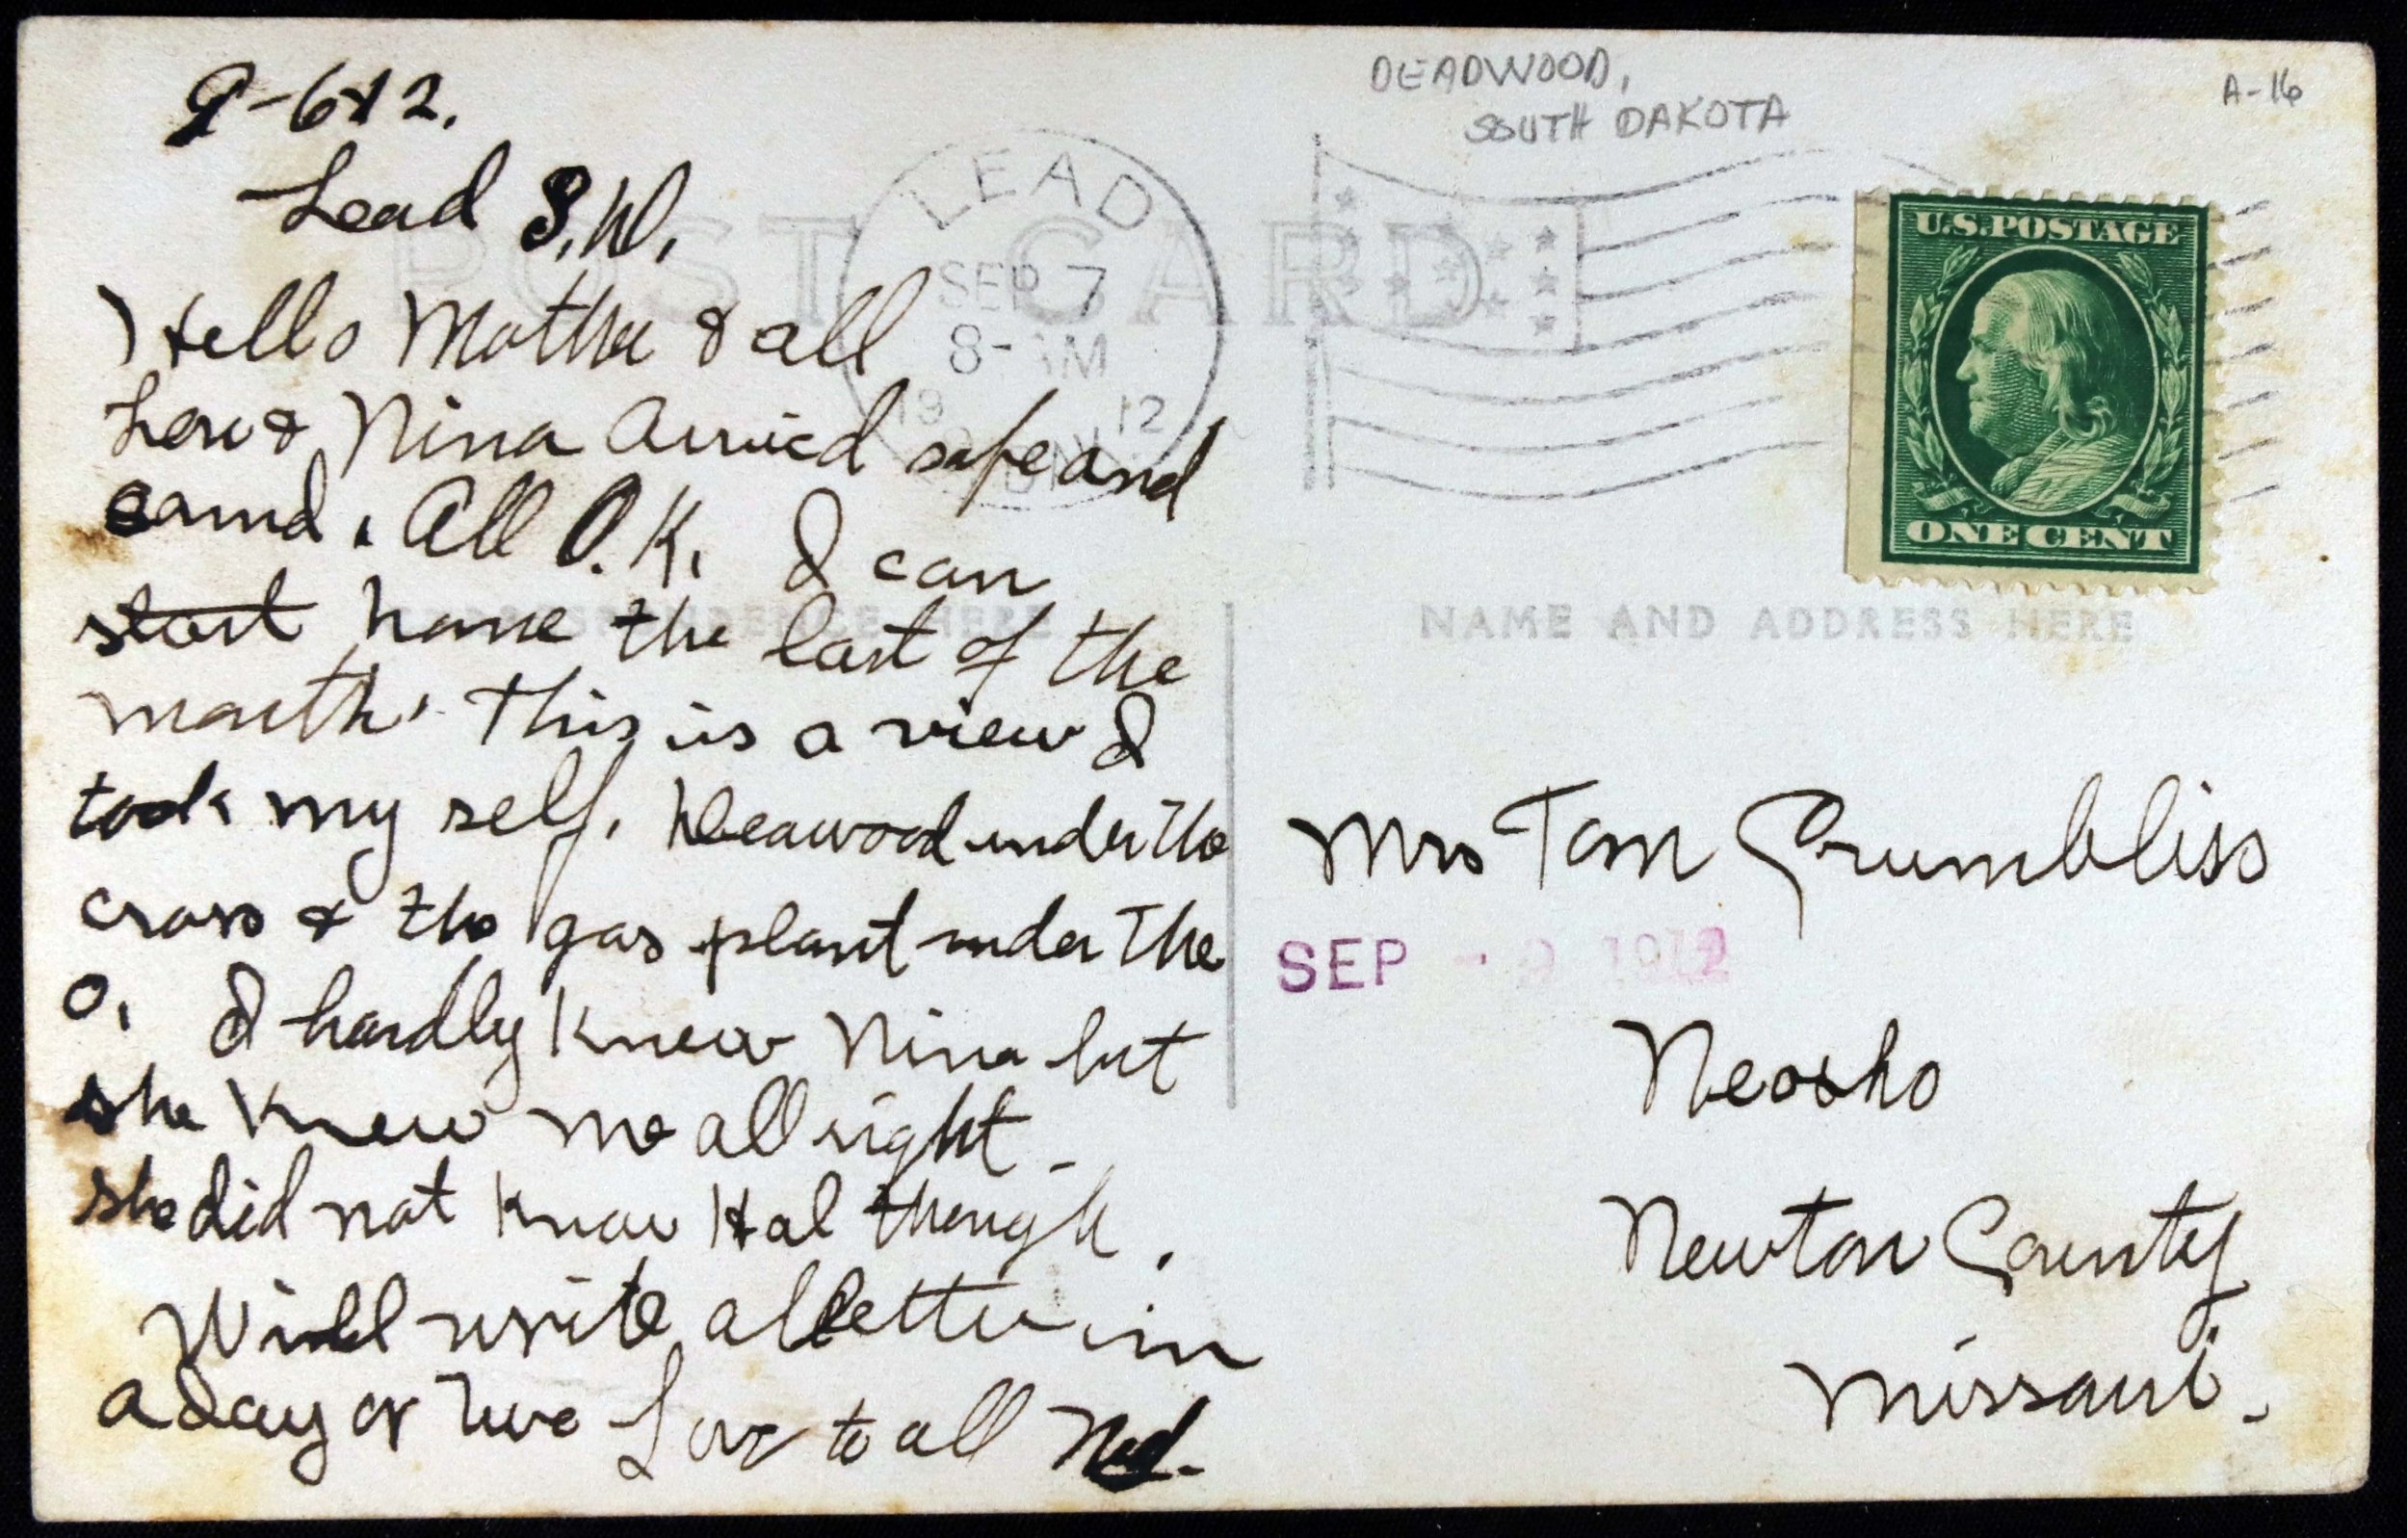 9-6-12.
Lead S.D.
Hello Mother & all
Lou & Nina Arrived safe and
sound. All O.K. I can
start home the last of the
month. This is a view I
took my self. Deawood under the
cross & the gas plant under the
O. I hardly knew Nina but
she knew me all right -
she did not know Hal though.
Will write a letter in
a day or two Love to all Ned.
POST CARD
CORRESPONDENCE HERE
DEADWOOD,
SOUTH DAKOTA
A-16
LEAD
SEP 7
8-AM
1912
U.S. POSTAGE
ONE CENT
NAME AND ADDRESS HERE
Mrs Tom Crumbliss
SEP - 9 1912
Neosho
Newton County
Missouri.